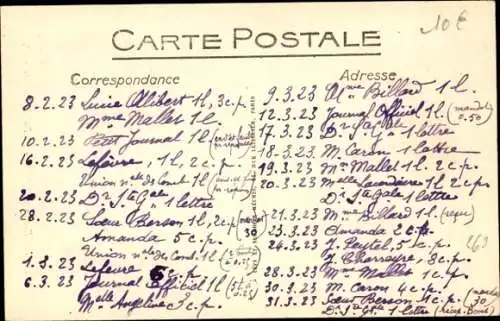 10€
CARTE POSTALE
Correspondance
8.2.23 Lucie Allibert 1 l, 3 c.p.
Mme Mallet 1 l
10.2.23 Petit Journal 1 l
16.2.23 Lefèvre, 1 l, 2 c.p.
Union nle des Comb. 1 l
20.2.23 Dr Ste Gale 1 lettre
28.2.23 Sœur Berson 1 l, 2 c.p. 30
Amanda 5 c.p.
Union nle des Comb. 1 l
1.3.23 Lefèvre 6 c.p.
6.3.23 Journal Officiel 1 l
Mlle Angeline 3 c.p.
Adresse
9.3.23 Mme Billard 1 l.
12.3.23 Journal Officiel 1 l (mandat 0.50)
17.3.23 Dr Ste Gale 1 lettre
18.3.23 M. Caron 1 lettre
19.3.23 Mme Mallet 1 c.p.
20.3.23 Melle 1 l 2 c.p.
Dr Ste Gale 1 lettre
21.3.23 Mme Billard 1 l. (reçu)
23.3.23 Amanda 2 c.p.
24.3.23 J. Peytel, 5 c.p.
1 c.p.
28.3.23 Mme Mallet 1 c.p.
30.3.23 M. Caron 4 c.p.
31.3.23 Sœur Berson 1 c.p. (mandat 30)
Dr Ste Gale 1 lettre
263